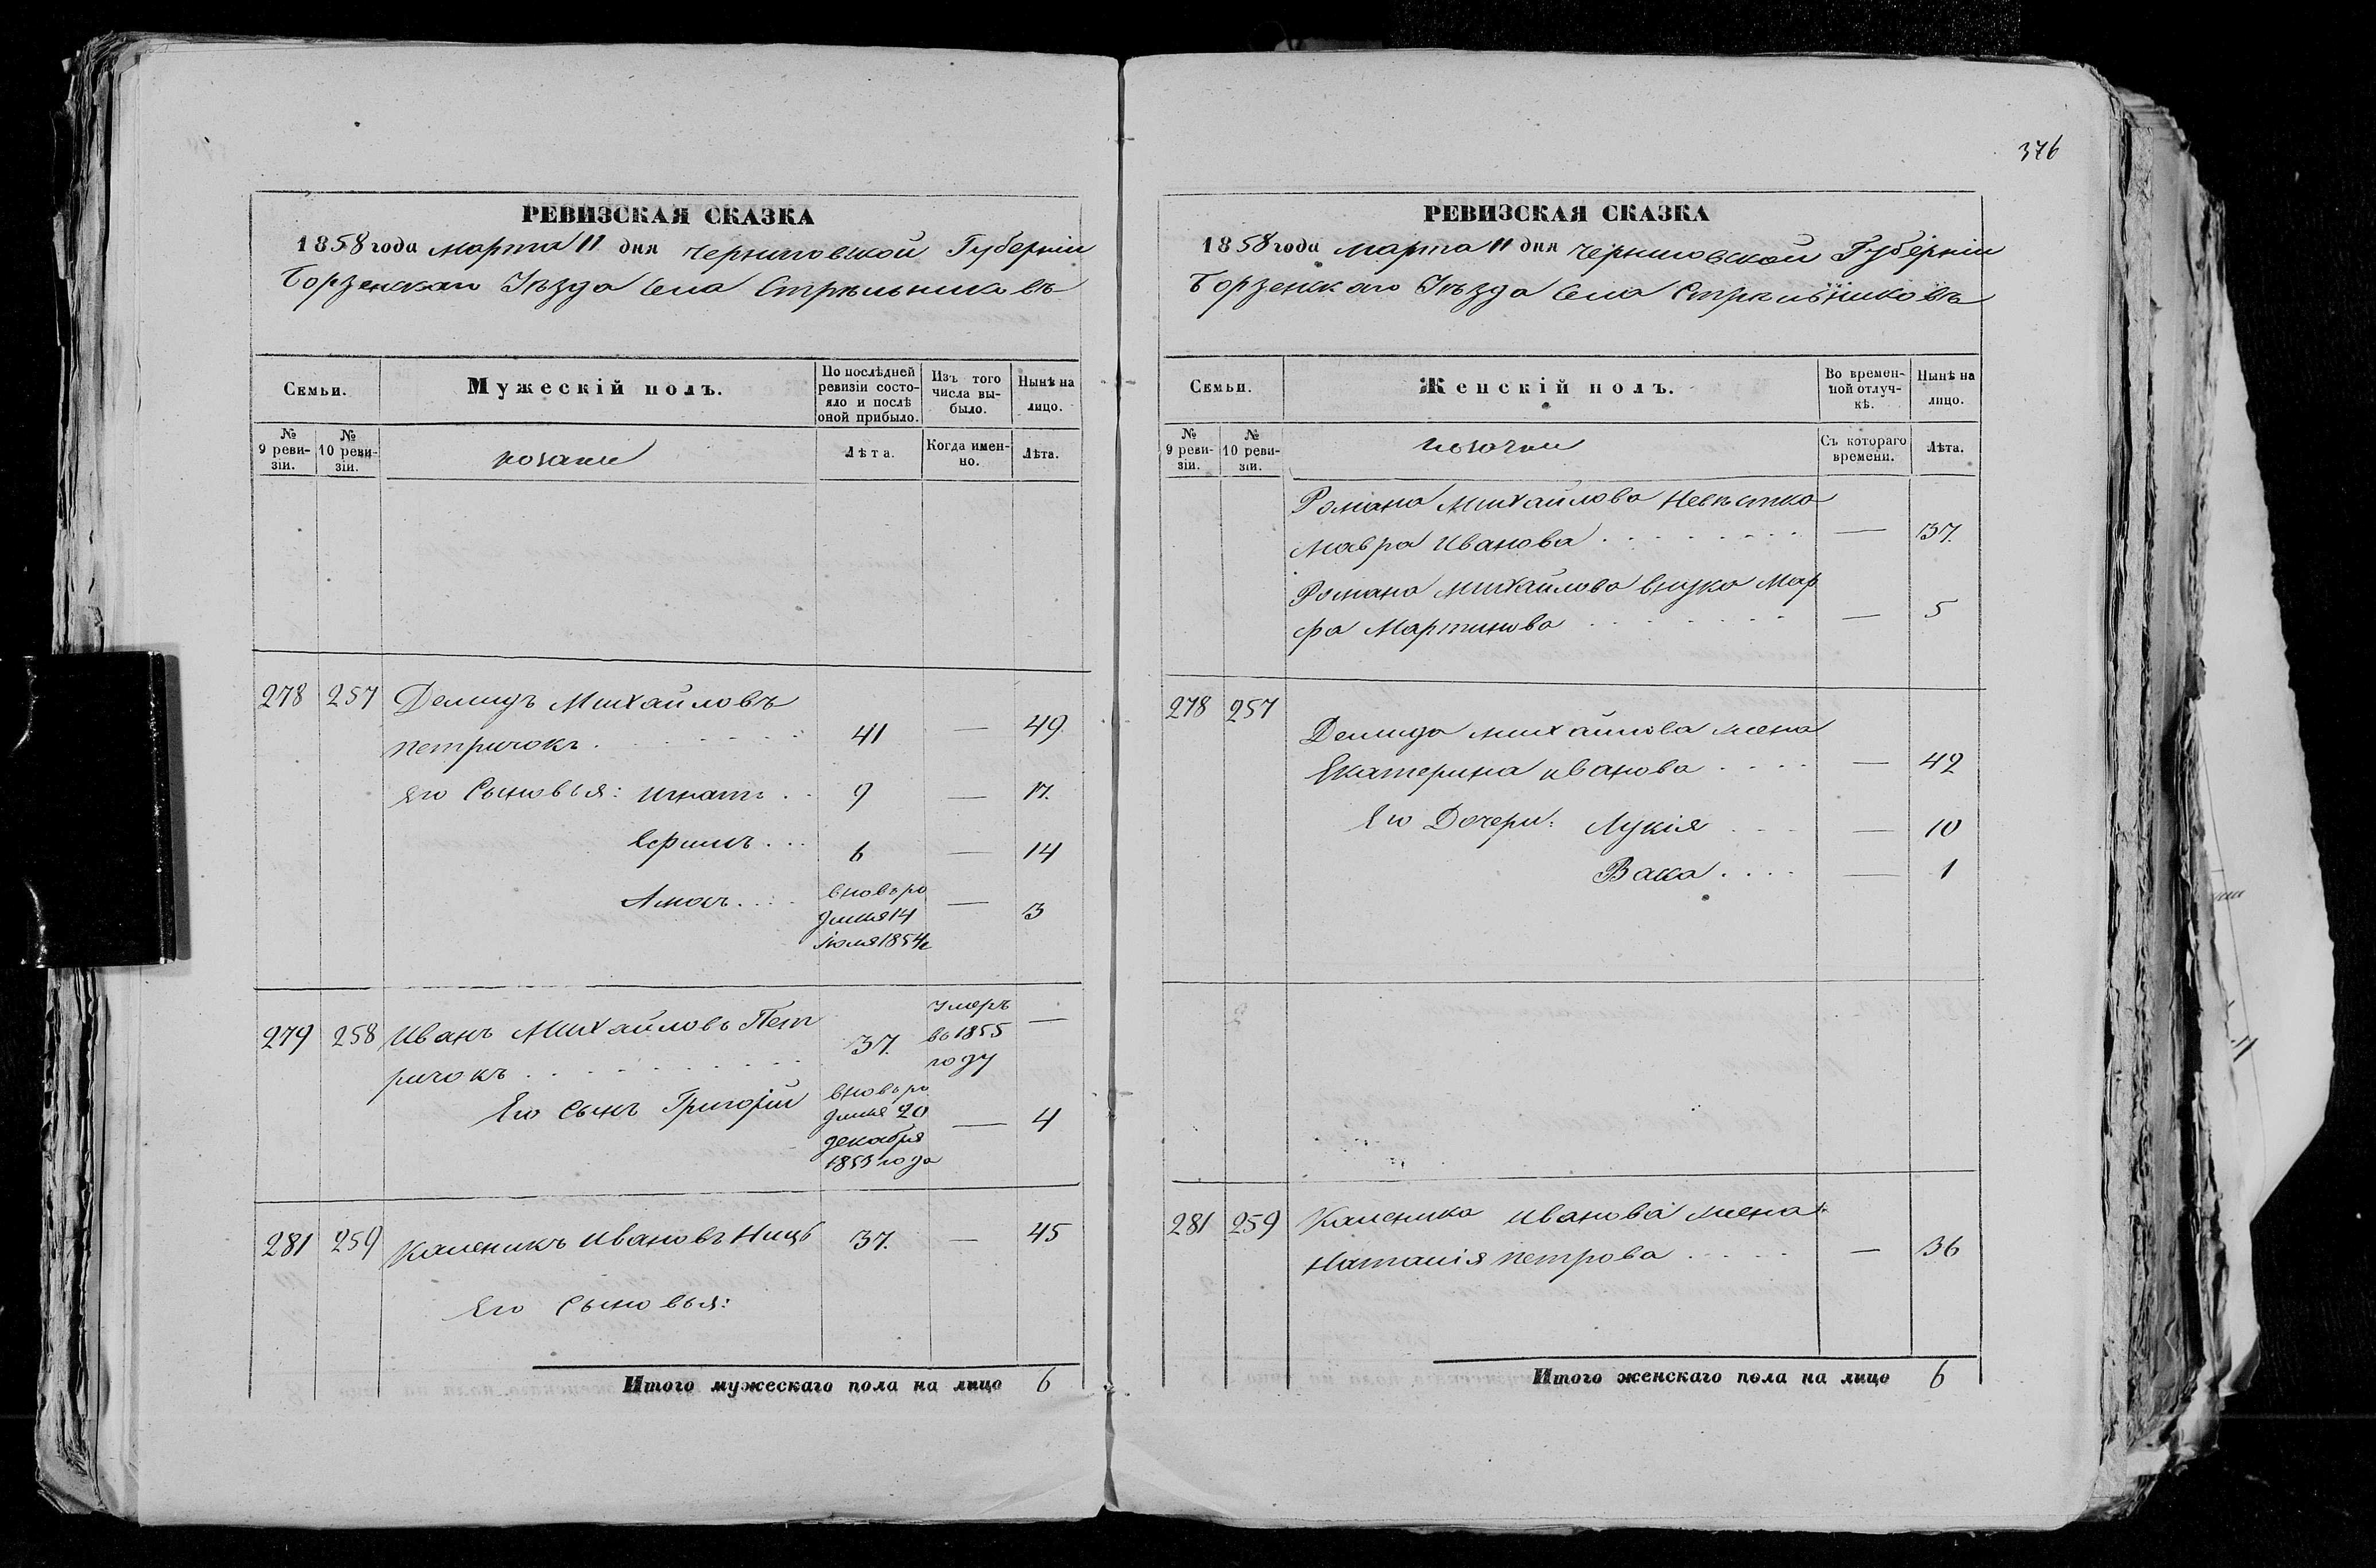 РЕВИЗСКАЯ СКАЗКА
1858 года марта 11 дня Черниговской Губерніи
Борзенскаго Уѣзда Села Стрѣльниковъ
Семьи.
Мужескій полъ.
По послѣдней ревизіи состояло и послѣ оной прибыло.
Изъ того числа выбыло.
Нынѣ на лицо.
№ 9 ревизіи.
№ 10 ревизіи.
козаки
Лѣта.
Когда именно.
Лѣта.
278 257 Демидъ Михайловъ
Петричокъ 41 — 49
Его Сыновья: Игнатъ 9 — 17.
Ефимъ 6 — 14
Амосъ вновь ро — 3
дился 14
Іюля 1854 г
279 258 Иванъ Михайловъ Пет 37. умеръ —
ричокъ во 1855
году
Его Сынъ Григорій вновь ро — 4
дился 20
декабря
1853 года
281 259 Каленикъ Ивановъ 37. — 45
Его Сыновья:
Итого мужескаго пола на лицо 6
376
РЕВИЗСКАЯ СКАЗКА
1858 года марта 11 дня Черниговской Губерніи
Борзенскаго Уѣзда Села Стрѣльниковъ
Семьи.
Женскій полъ.
Во временной отлучкѣ.
Нынѣ на лицо.
№ 9 ревизіи.
№ 10 ревизіи.
козачки
Съ котораго времени.
Лѣта.
Романа Михайлова Невѣстка
Мавра Иванова — 37.
Романа Михайлова внука Мар
фа Мартинова — 5
278 257
Демида Михайлова жена
Екатерина Иванова — 42
Его Дочери: Лукія — 10
Васса — 1
281 259 Каленика Иванова жена
Наталія Петрова — 36
Итого женскаго пола на лицо 6